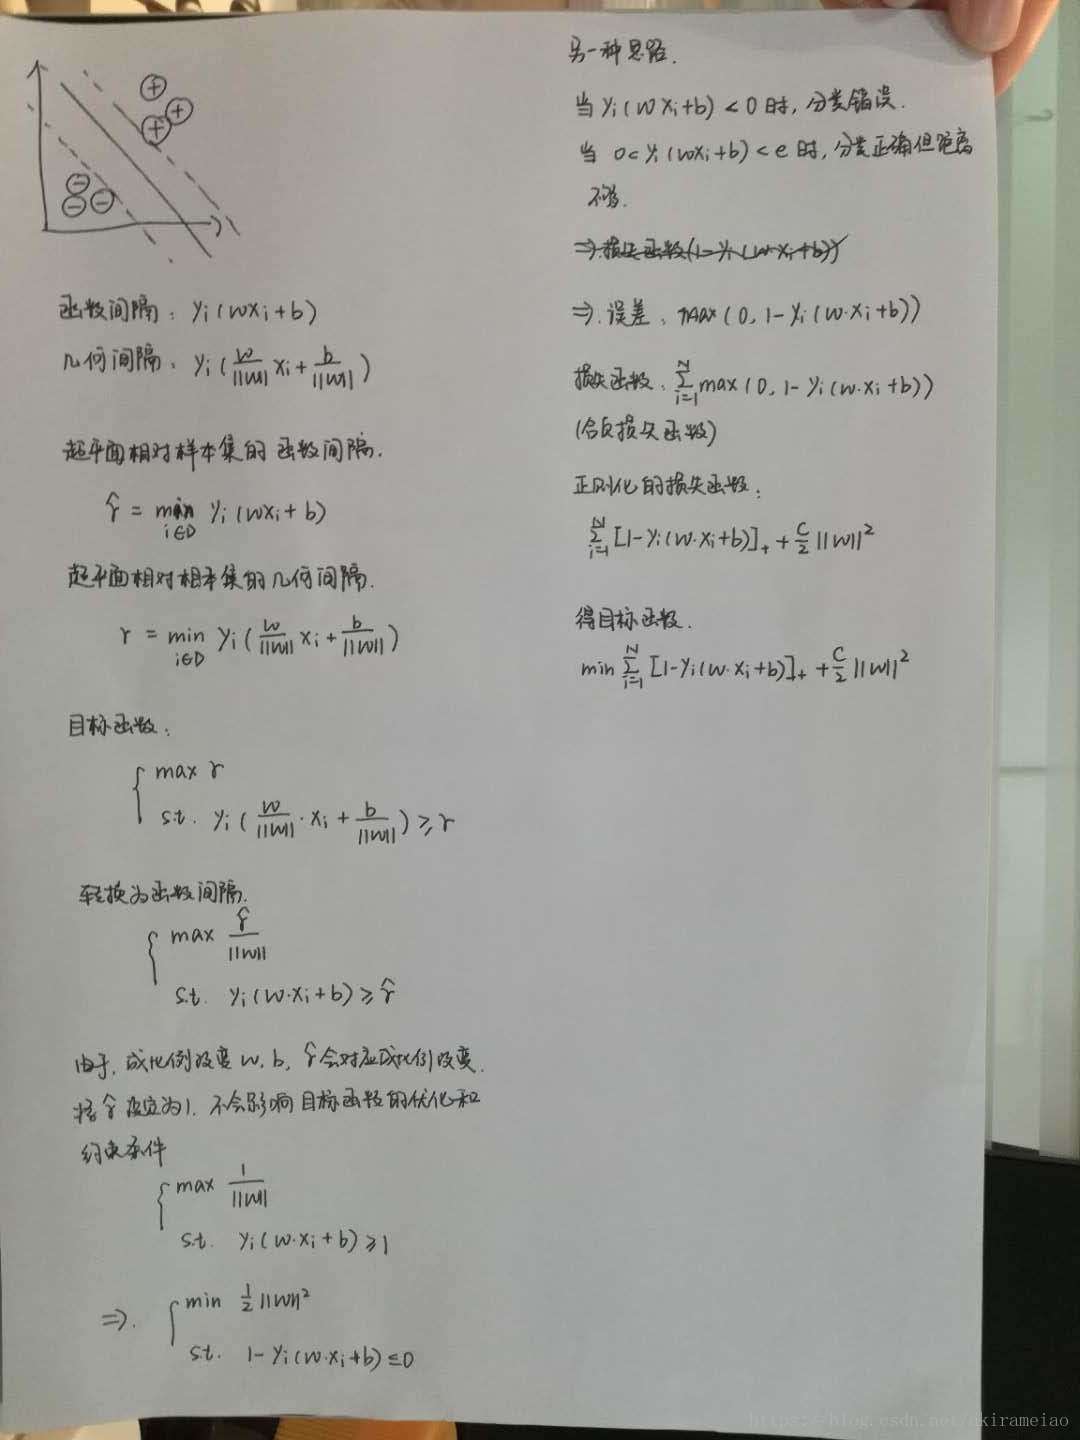 函数间隔: yi(wxi+b)
几何间隔: yi(w/||w|| xi + b/||w||)
超平面相对样本集的函数间隔.
r̂ = min i∈D yi(wxi+b)
超平面相对相本集的几何间隔.
r = min i∈D yi(w/||w|| xi + b/||w||)
目标函数:
{ max r
s.t. yi(w/||w||·xi + b/||w||) ≥ r
转换为函数间隔.
{ max r̂/||w||
s.t. yi(w·xi+b) ≥ r̂
由于, 成比例改变 w, b, r̂会对应成比例改变.
将 r̂ 设定为1. 不会影响目标函数的优化和
约束条件
{ max 1/||w||
s.t. yi(w·xi+b) ≥ 1
⇒. { min 1/2||w||²
s.t. 1-yi(w·xi+b) ≤ 0
另一种思路.
当 yi(wxi+b) < 0 时, 分类错误.
当 0< yi(wxi+b) < e 时, 分类正确但距离
不够.
⇒. 损失函数(1-yi(w·xi+b))
⇒. 误差: max(0, 1-yi(w·xi+b))
损失函数: ∑ i=1 N max(0, 1-yi(w·xi+b))
(合页损失函数)
正则化的损失函数:
∑ i=1 N [1-yi(w·xi+b)]+ + C/2 ||w||²
得目标函数.
min ∑ i=1 N [1-yi(w·xi+b)]+ + C/2 ||w||²
https://blog.csdn.net/akirameiao